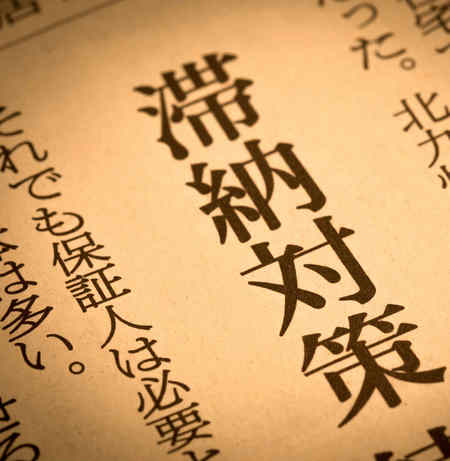 った。北九
滞納対策
それでも保証人は必要
は多い。